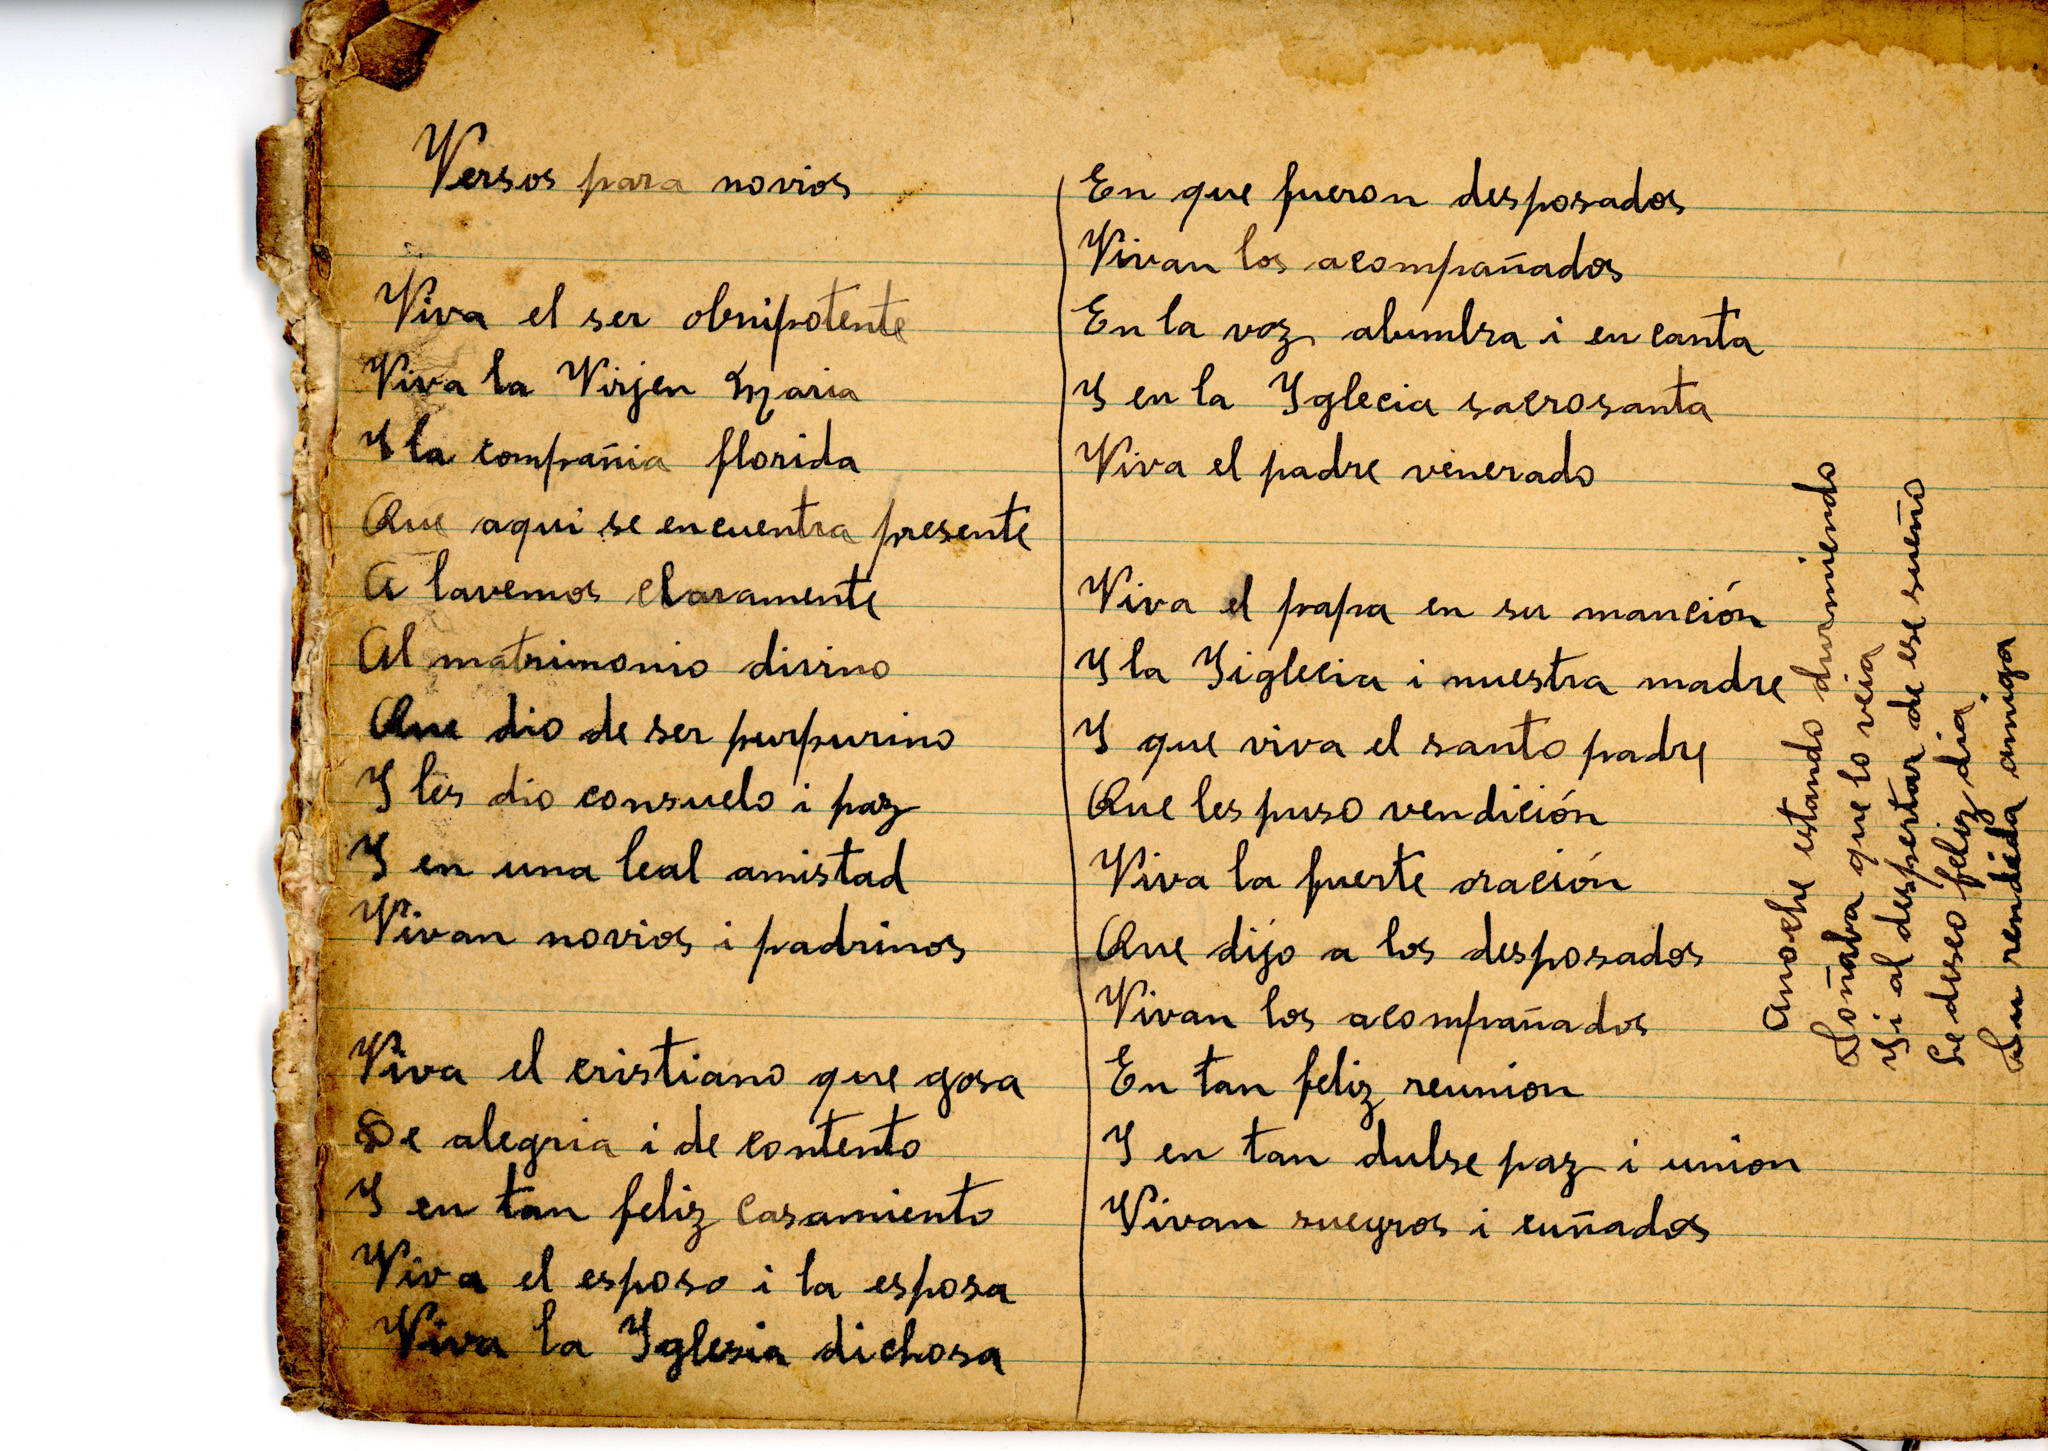 Versos para novios
Viva el ser obnipotente
Viva la Virjen Maria
I la compañia florida
Que aqui se encuentra presente
A lavemos claramente
Al matrimonio divino
Que dio de ser purpurino
I les dio consuelo i paz
I en una leal amistad
Vivan novios i padrinos
Viva el cristiano que gosa
De alegria i de contento
I en tan feliz casamiento
Viva el esposo i la esposa
Viva la Iglesia dichosa
En que fueron desposados
Vivan los acompañados
En la voz alumbra i en canta
I en la Iglecia sacrosanta
Viva el padre venerado
Viva el papa en su manción
I la Iiglecia i nuestra madre
I que viva el santo padre
Que les puso vendición
Viva la fuerte oración
Que dijo a los desposados
Vivan los acompañados
En tan feliz reunion
I en tan dulse paz i union
Vivan suegros i cuñados
Anoche estando durmiendo
Soñaba que lo veia
Ii al despertar de ese sueño
Le deseo feliz dia
Su rendida amiga